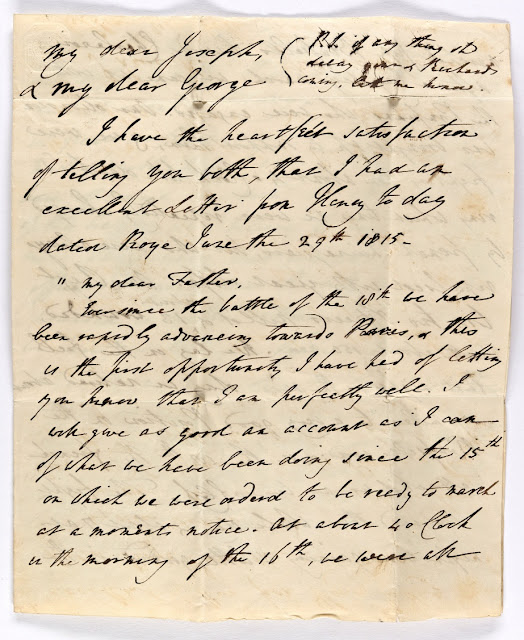 My dear Joseph,
& my dear George
P.S. if any thing sh
delay your & Richards
coming, let me know.
I have the heartfelt satisfaction
of telling you both, that I had an
excellent Letter from Henry to day
dated Roye June the 29th 1815-
" my dear Father,
Ever since the battle of the 18th we have
been rapidly advancing towards Paris, & this
is the first opportunity I have had of letting
you know that I am perfectly well. I
will give as good an account as I can
of what we have been doing since the 15th
on which we were orderd to be ready to march
at a moments notice. At about 4 o Clock
in the morning of the 16th, we were all